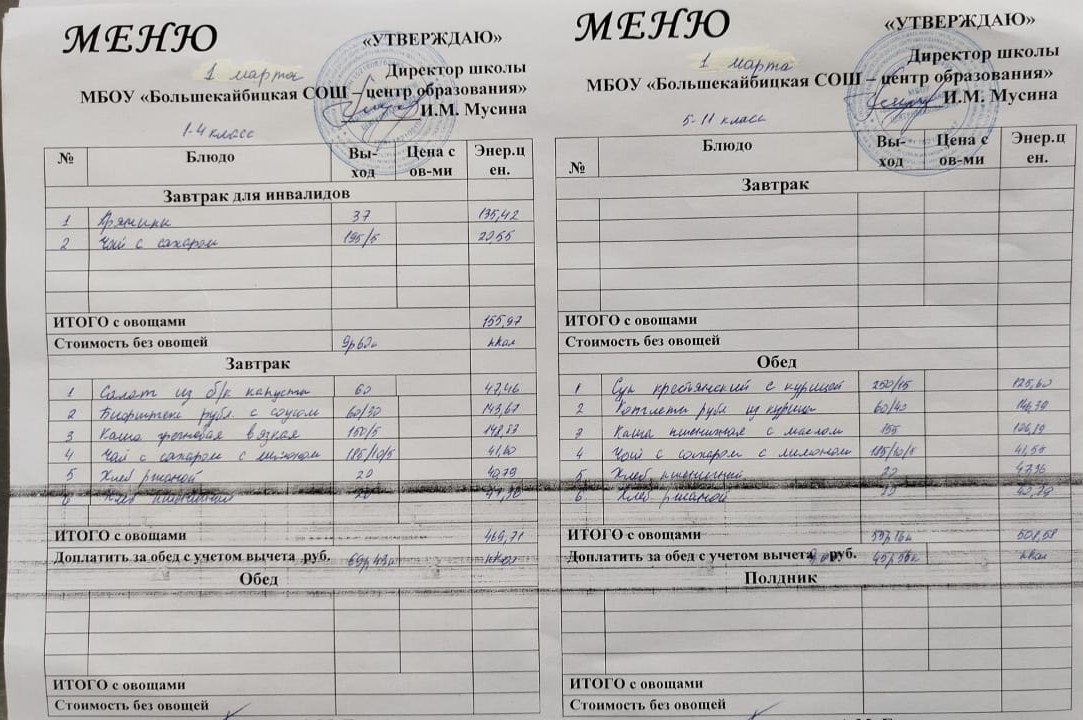 МЕНЮ
«УТВЕРЖДАЮ»
1 марта
Директор школы
МБОУ «Большекайбицкая СОШ – центр образования»
И.М. Мусина
1-4 класс
№ Блюдо Вы-ход Цена с ов-ми Энер.цен.
Завтрак для инвалидов
1 Пряники 37 135,42
2 Чай с сахаром 195/5 20,55
ИТОГО с овощами 155,97
Стоимость без овощей 9р62к ккал
Завтрак
1 Салат из б/к капусты 60 47,46
2 Бифштекс рубл с соусом 60/30 143,67
3 Каша гречневая вязкая 150/5
4 Чай с сахаром с лимоном 185/10/5
5 Хлеб ржаной 20 40,79
6 Хлеб пшеничный 20
ИТОГО с овощами 469,71
Доплатить за обед с учетом вычета руб. ккал
Обед
ИТОГО с овощами
Стоимость без овощей
МЕНЮ
«УТВЕРЖДАЮ»
1 марта
Директор школы
МБОУ «Большекайбицкая СОШ – центр образования»
И.М. Мусина
5-11 класс
№ Блюдо Вы-ход Цена с ов-ми Энер.цен.
Завтрак
ИТОГО с овощами
Стоимость без овощей
Обед
1 Суп крестьянский с курицей 250/15 125,60
2 Котлеты рубл из курицы 60/40
3 Каша пшеничная с маслом 155
4 Чай с сахаром с лимоном 185/10/5 41,50
5 Хлеб пшеничный 20
6 Хлеб ржаной
ИТОГО с овощами 501,58
Доплатить за обед с учетом вычета руб. ккал
Полдник
ИТОГО с овощами
Стоимость без овощей